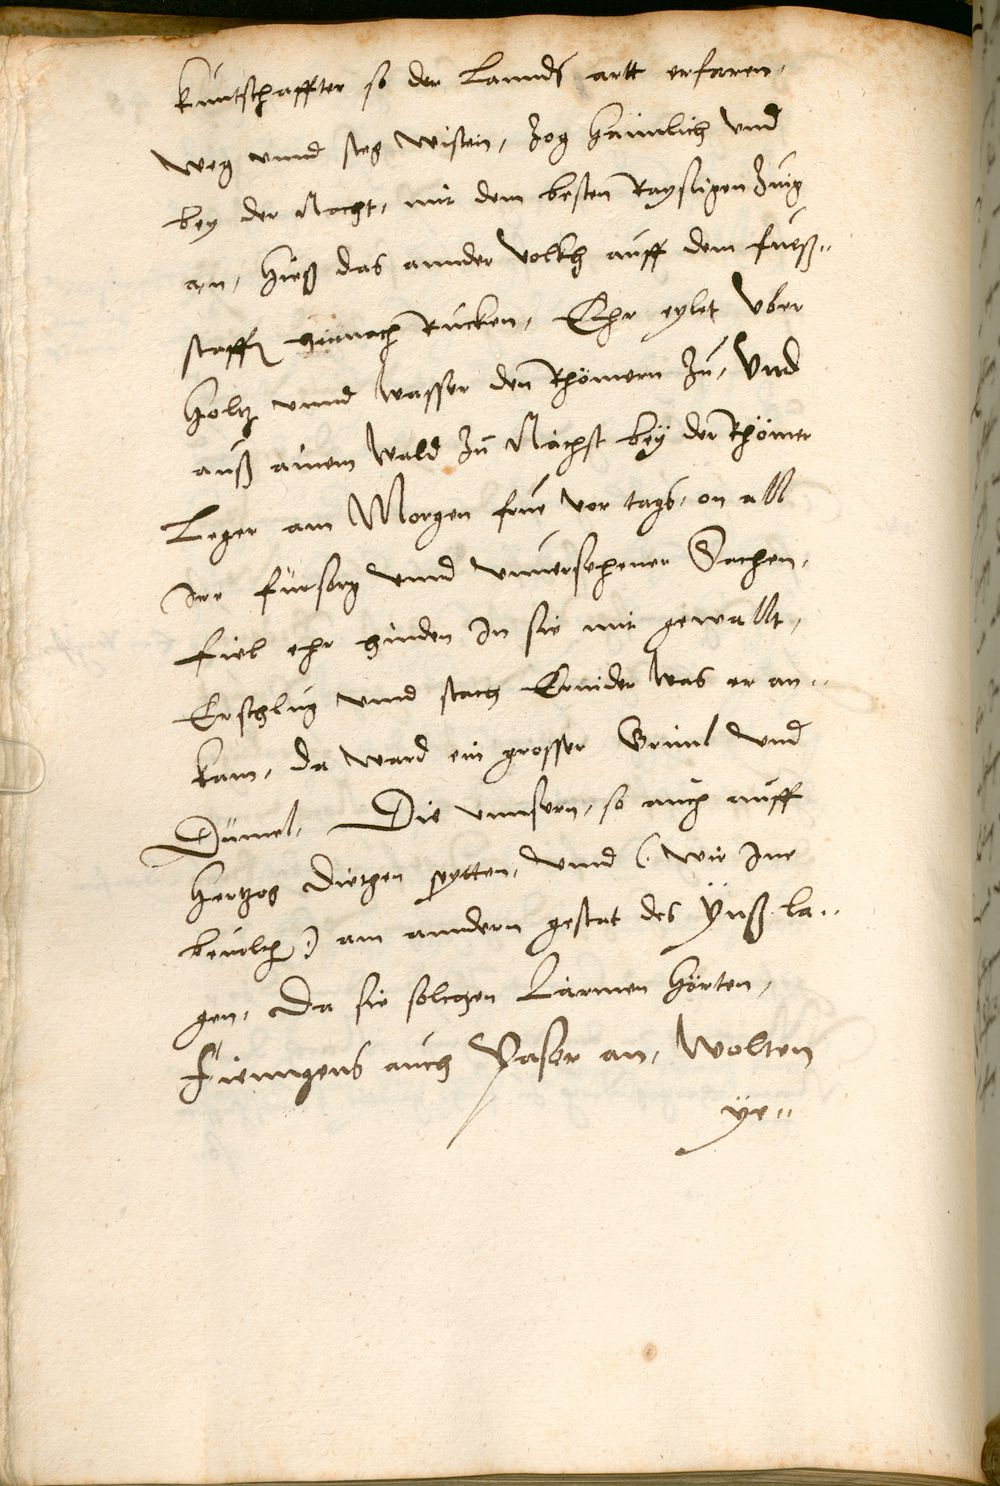 kuntschaffter so der Lannds artt erfaren,
weg vnnd steg wisten, zog haimlich vnd
bey der Nacht, mit dem besten Raysigen Zuig
an, hieß das annder volkh auff dem fueß¬
staffl hinnach Rucken, Ehr eylet vber
holtz vnnd wasser den Rhömern zu, Vnd
auß ainem wald zu Nächst beÿ der Rhömer
Leger am Morgen frue vor tags, on all
Irr fürsorg vnnd vnuersehener Sachen,
fiel ehr hinden In sie mit gewallt,
Erschlug vnnd stach Ernider was er an¬
kam, da ward ein grosser Griml vnd
Dümel, Die vnnsern, so auch auff
Hertzog Diethen heytten, vnnd (: wie Jnr
beuolh :) am anndern gestat des Yuß la¬
gen, Da sie solchen Lärmen hörten,
Fienngens auch Vaser an, wolten
ÿe¬